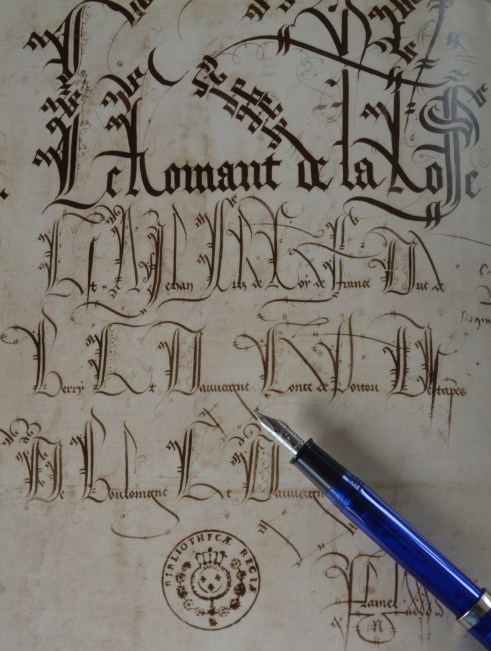 Le Romant de la Rose
Jehan filz de Roy de France Duc de
Berry Et Dauvergne Conte de Poitou Destapes
De Boulomgne Et Dauvergne
BIBLIOTHECÆ REGIÆ
Flamel